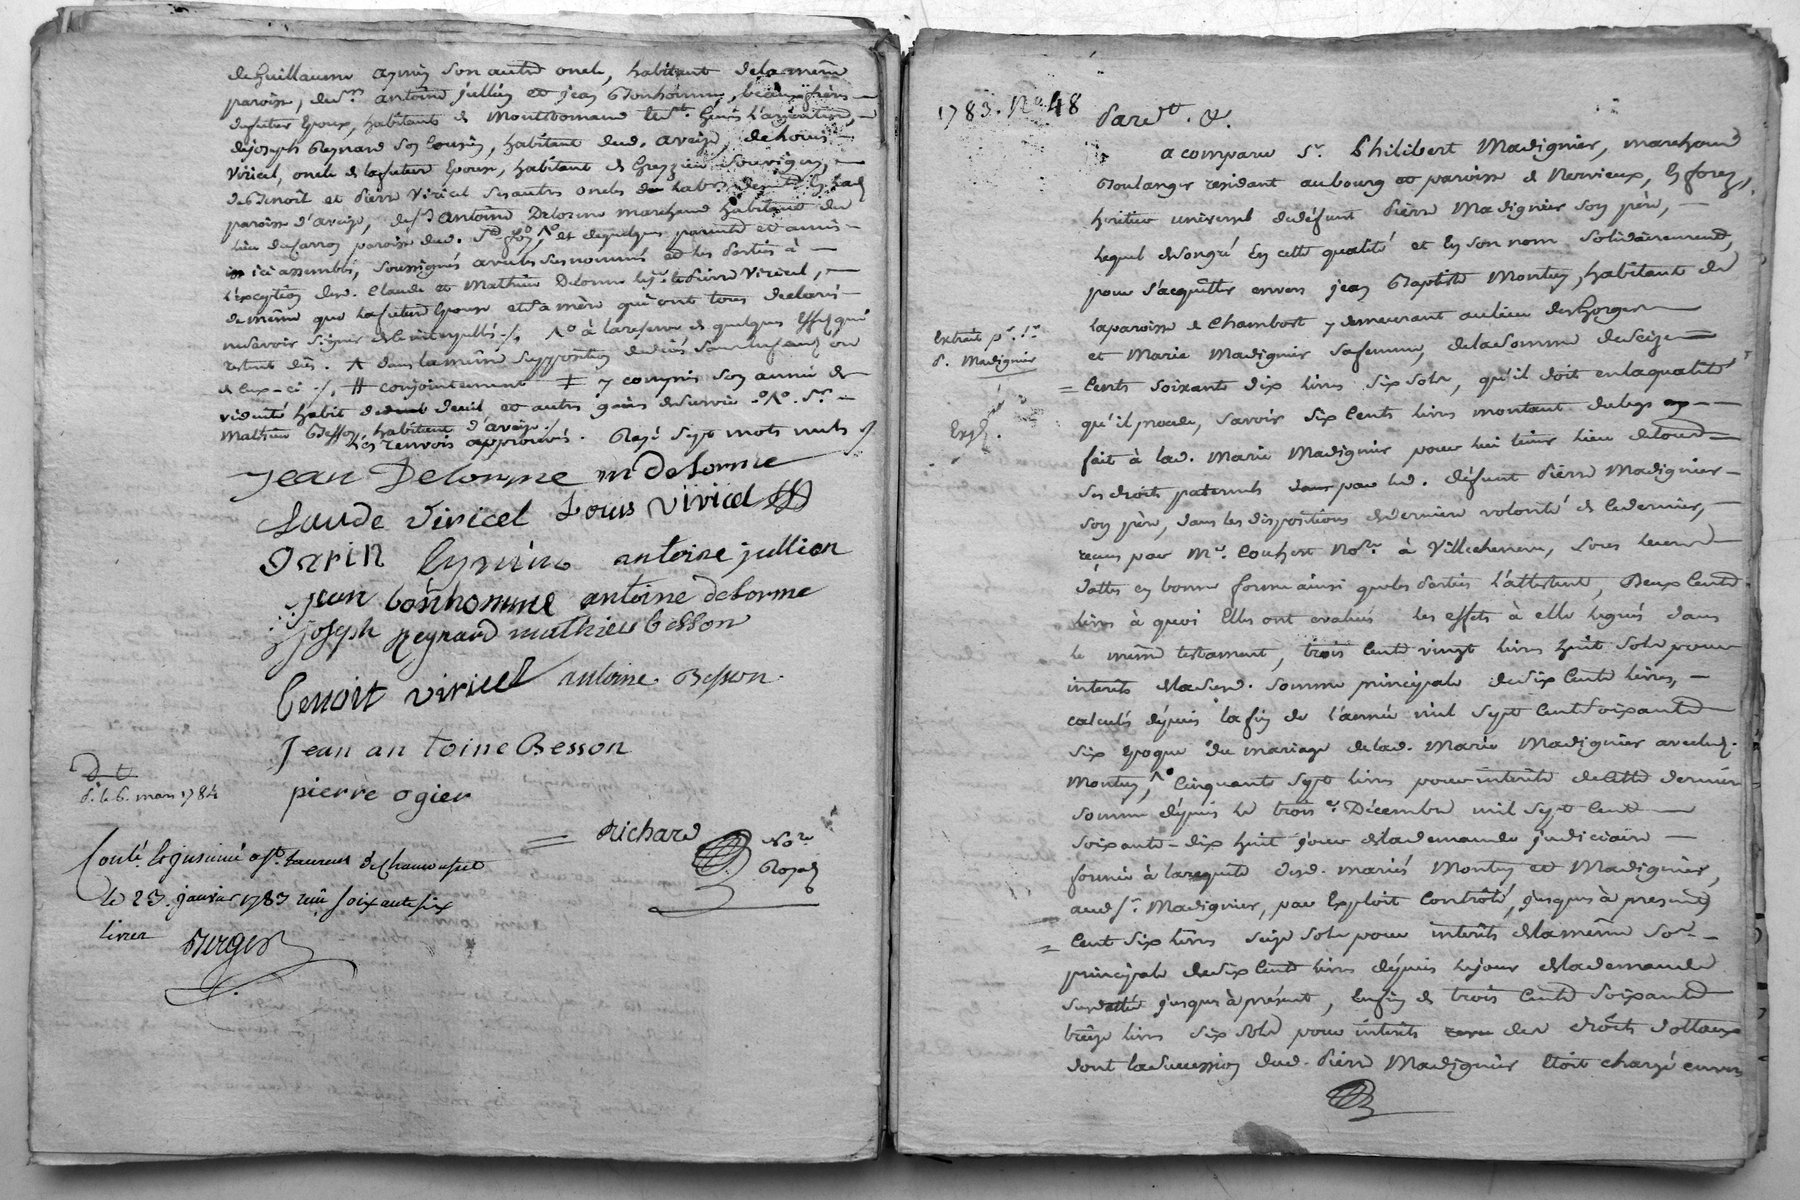 de Guillaume aymin son autre oncle, habitant de la même
paroisse, de Sr. antoine jullien et jean Bonhomme, beaux freres
du futur Epoux, habitants de Montromand
de joseph Reynard son Cousin, habitant dud. aveize, de Louis
Viricel, oncle de la future Epouse, habitant de Grezzieu Souvigny,
de Benoit et Pierre Viricel ses autres oncles
paroisse d'aveize, de Sr. antoine Delorme marchand habitant du
lieu du paroisse dud. et de quelques parents et amis
ici assemblés, soussignés avec les et les Parties à
l'exception desd. Claude et Mathieu Delorme led. Pierre Viricel,
de même que la future Epouse et sa mère qui ont tous declaré
ne savoir signer de ce interpellés ./. à la reserve de quelques Effets qui
restent dûs. dans la même supposition de décés sans Enfants ou
de ceux-ci ./. # conjointement ‡ y compris son année de
viduité habit de deuil, et autres gains de survie Sr.
Mathieu Besson habitant d'aveize ./.
Les renvois approuvés. Rayé sept mots nuls ./.
jean Delorme m delorme
Claude Viricel Louis Viricel
antoine jullien
jean bonhomme antoine delorme
joseph Reynard mathieu besson
Benoit viricel antoine Besson
Jean antoine Besson
pierre ogier
Richard Nore.
Royal
le 6. mars 1784
Conté. Et insinué
le 23. janvier 1783 reçu soixante six
livres Berger
1783. No. 48
Pardt. &.
a comparu Sr. Philibert Madignier, marchand
Boulanger residant au bourg et paroisse de Nervieux, En forez,
heritier universel de défunt Pierre Madignier son père,
lequel de son gré En cette qualité et En son nom solidairement,
pour s'acquitter envers jean Baptiste Montey, habitant de
la paroisse de Chambost y demeurant au lieu des Gorges
et Marie Madignier sa femme, de la somme de seize
Cents soixante dix livres six sols, qu'il doit en la qualité
Extrait pr. Sr.
P. Madignier
qu'il procede, savoir six Cents livres montant du legs
Expé.
fait à lad. Marie Madignier pour lui tenir lieu de tous
ses droits paternels par led. défunt Pierre Madignier
son père, dans les dispositions de derniere volonté de ce dernier,
reçues par Me. Couhert Nore. à Villechenève,
dattes en bonne forme ainsi que les Parties l'attestent, Deux Cents
livres à quoi Elles ont evalués les effets à elle legués dans
le même testament, trois Cents vingt livres huit sols pour
interets de la susd. somme principale de six Cents livres,
calculés dépuis la fin de l'année mil sept Cent soixante
six epoque du mariage de lad. Marie Madignier avec led.
Montey, Cinquante sept livres pour interêts de cette derniere
somme dépuis le trois Décembre mil sept Cent
soixante-dix huit jour de la demande judiciaire
formée à la requête desd. mariés Montey et Madignier,
aud. Sr. Madignier, par Exploit Contrôlé, jusques à present,
Cent six livres seize sols pour interêts de la même
principale de six Cents livres dépuis le jour de la demande
jusques à présent, Enfin de trois Cents soixante
treize livres six sols pour interêts des droits dottaux
dont la succession dud. Pierre Madignier Etoit chargé envers